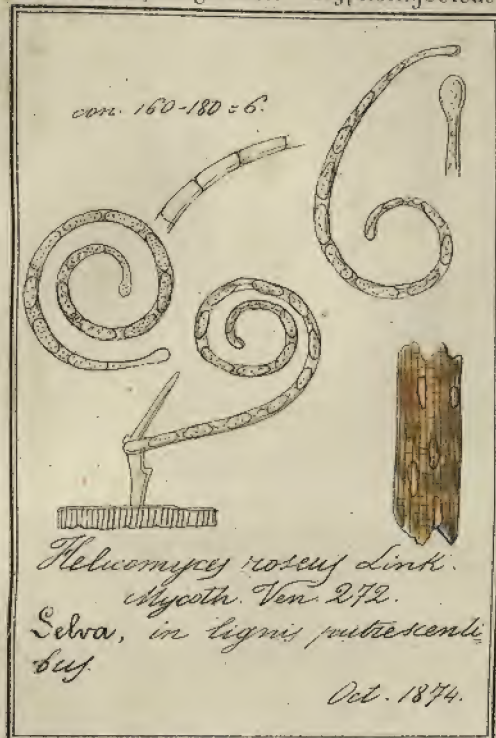 con. 160-180 = 6.
Helicomyces roseus Link.
Mycoth. Ven. 272.
Selva, in lignis putrescenti=
bus.
Oct. 1874.